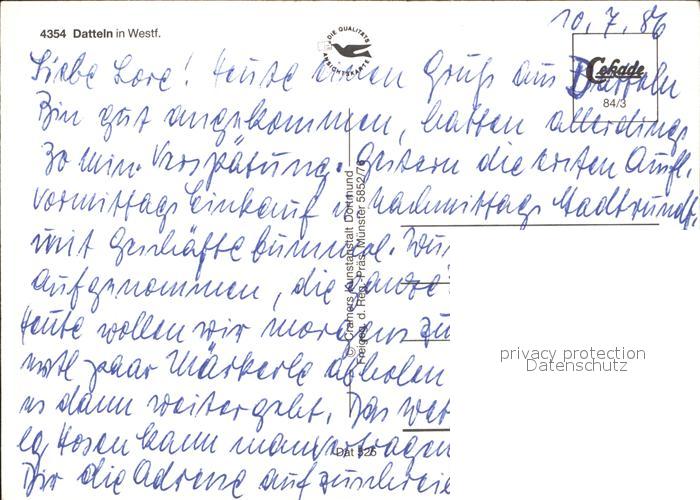 10. 7. 86
4354 Datteln in Westf.
DIE QUALITÄTS ANSICHTSKARTE
Cekade
84/3
Liebe Lore! Heute einen Gruß aus Datteln
Bin gut angekommen, hatten allerdings
30 Min. Verspätung. Gestern die ersten Ausfl.
Vormittags Einkauf u. nachmittags Stadtrundf.
mit Geschäftebummel. Wu
aufgenommen, die ganze
Heute wollen wir morgens zu
paar Märkerle abholen
es dann weitergeht. Das Wet
Hosen kann man ertragen
Dir die Adresse aufzuschreie
© Cramers Kunstanstalt Dortmund
Freigeg. d. Reg.-Präs. Münster 5852/76
Dat 326
privacy protection
Datenschutz